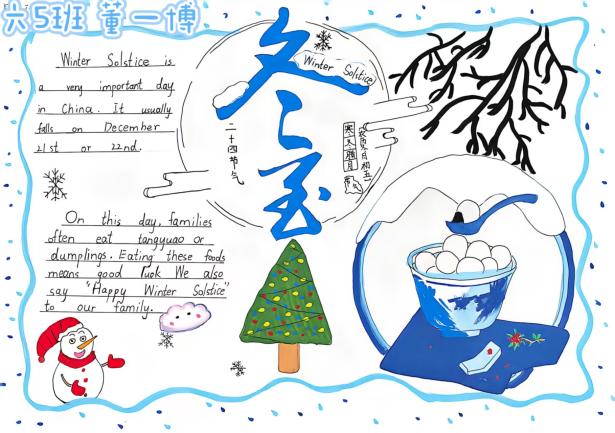 六5班 董一博
Winter Solstice is
a very important day
in China. It usually
falls on December
21st or 22nd.
冬至
Winter Solstice
二十四节气
On this day, families
often eat tangyuao or
dumplings. Eating these foods
means good luok We also
say "Happy Winter Solstice"
to our family.